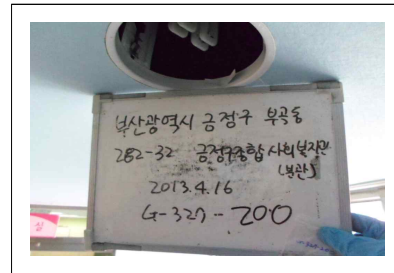 부산광역시 금정구 부곡동
282-32 금정구종합사회복지관
(본관)
2013.4.16
G-327-200